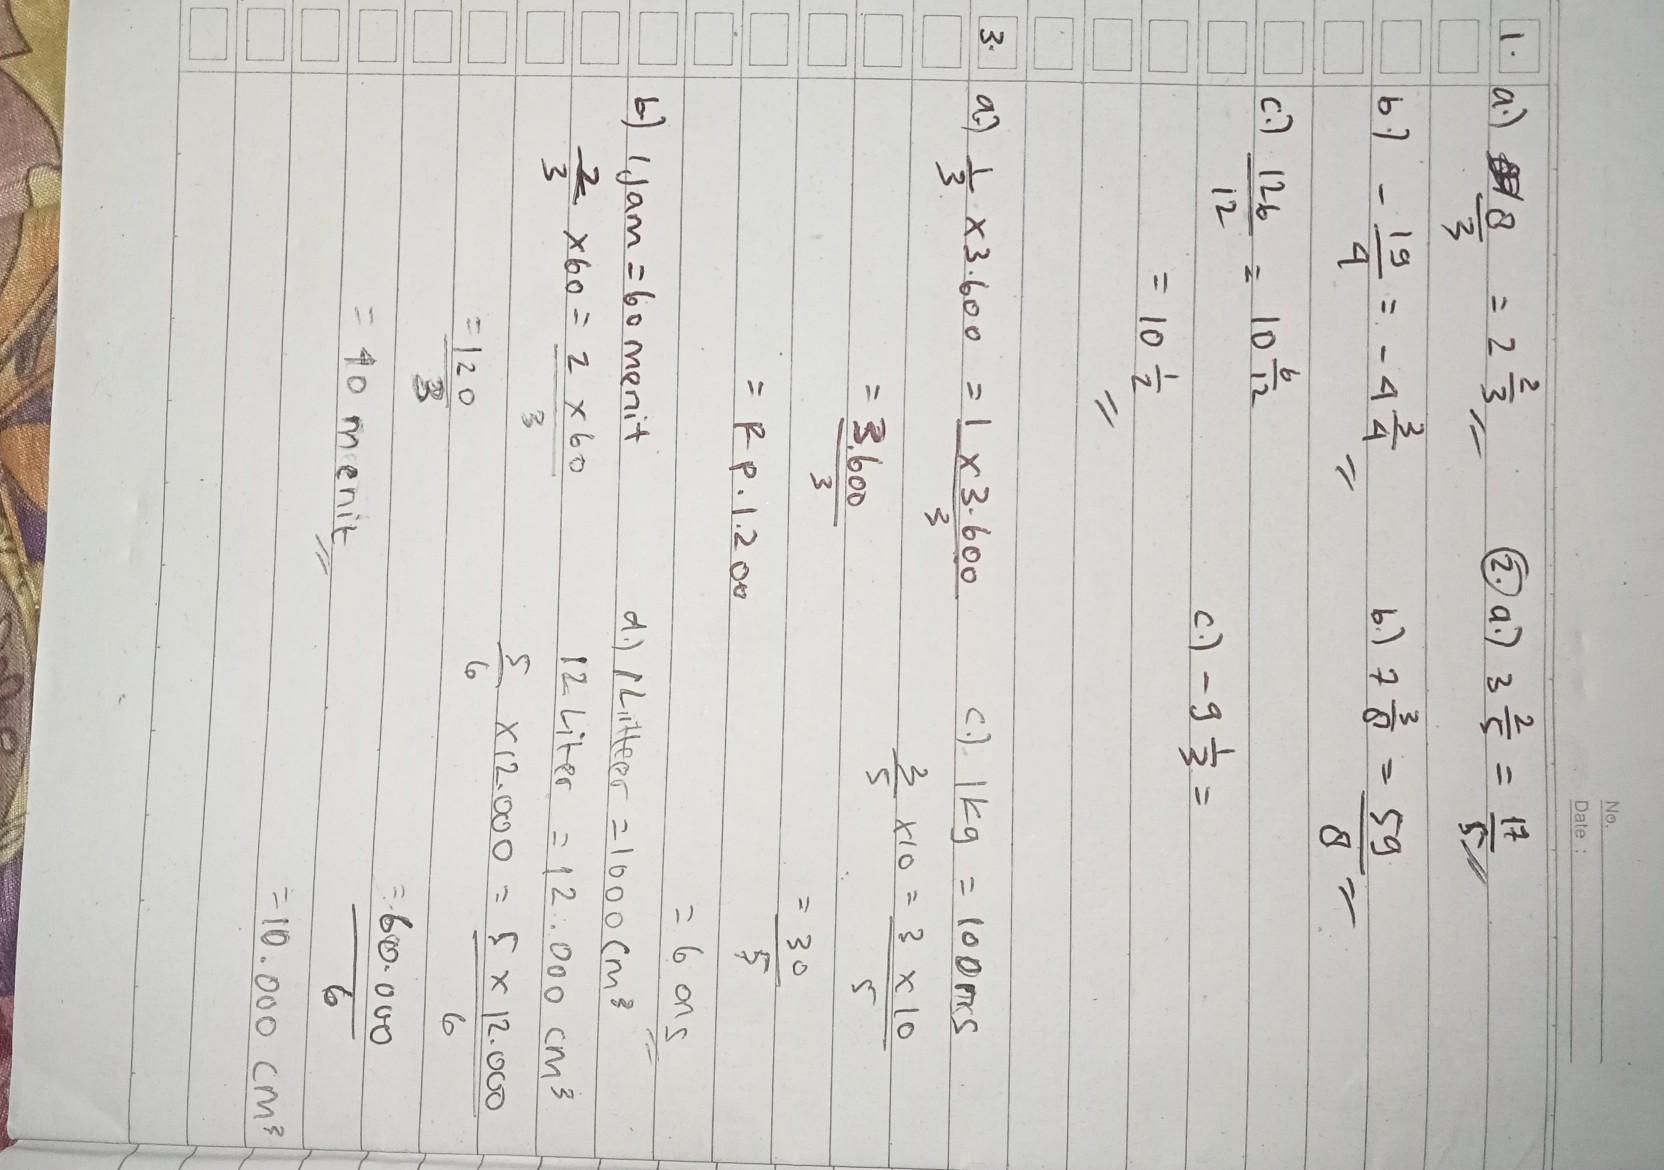 No.
Date :
1. a.) 8/3 = 2 2/3
b.) - 19/4 = - 4 3/4
c.) 126/12 = 10 6/12
= 10 1/2
2. a.) 3 2/5 = 17/5
b.) 7 3/8 = 59/8
c.) - 9 1/3 =
3. a.) 1/3 x 3.600 = 1 x 3.600/3
= 3.600/3
= Rp. 1.200
b.) 1 Jam = 60 menit
2/3 x 60 = 2 x 60/3
= 120/3
= 40 menit
c.) 1 kg = 10
3/5 x 10 = 3 x 10/5
= 30/5
= 6 ons
d.) 1 Litter = 1000 cm³
12 Liter = 12.000 cm³
5/6 x 12.000 = 5 x 12.000/6
= 600.000/6
= 10.000 cm³